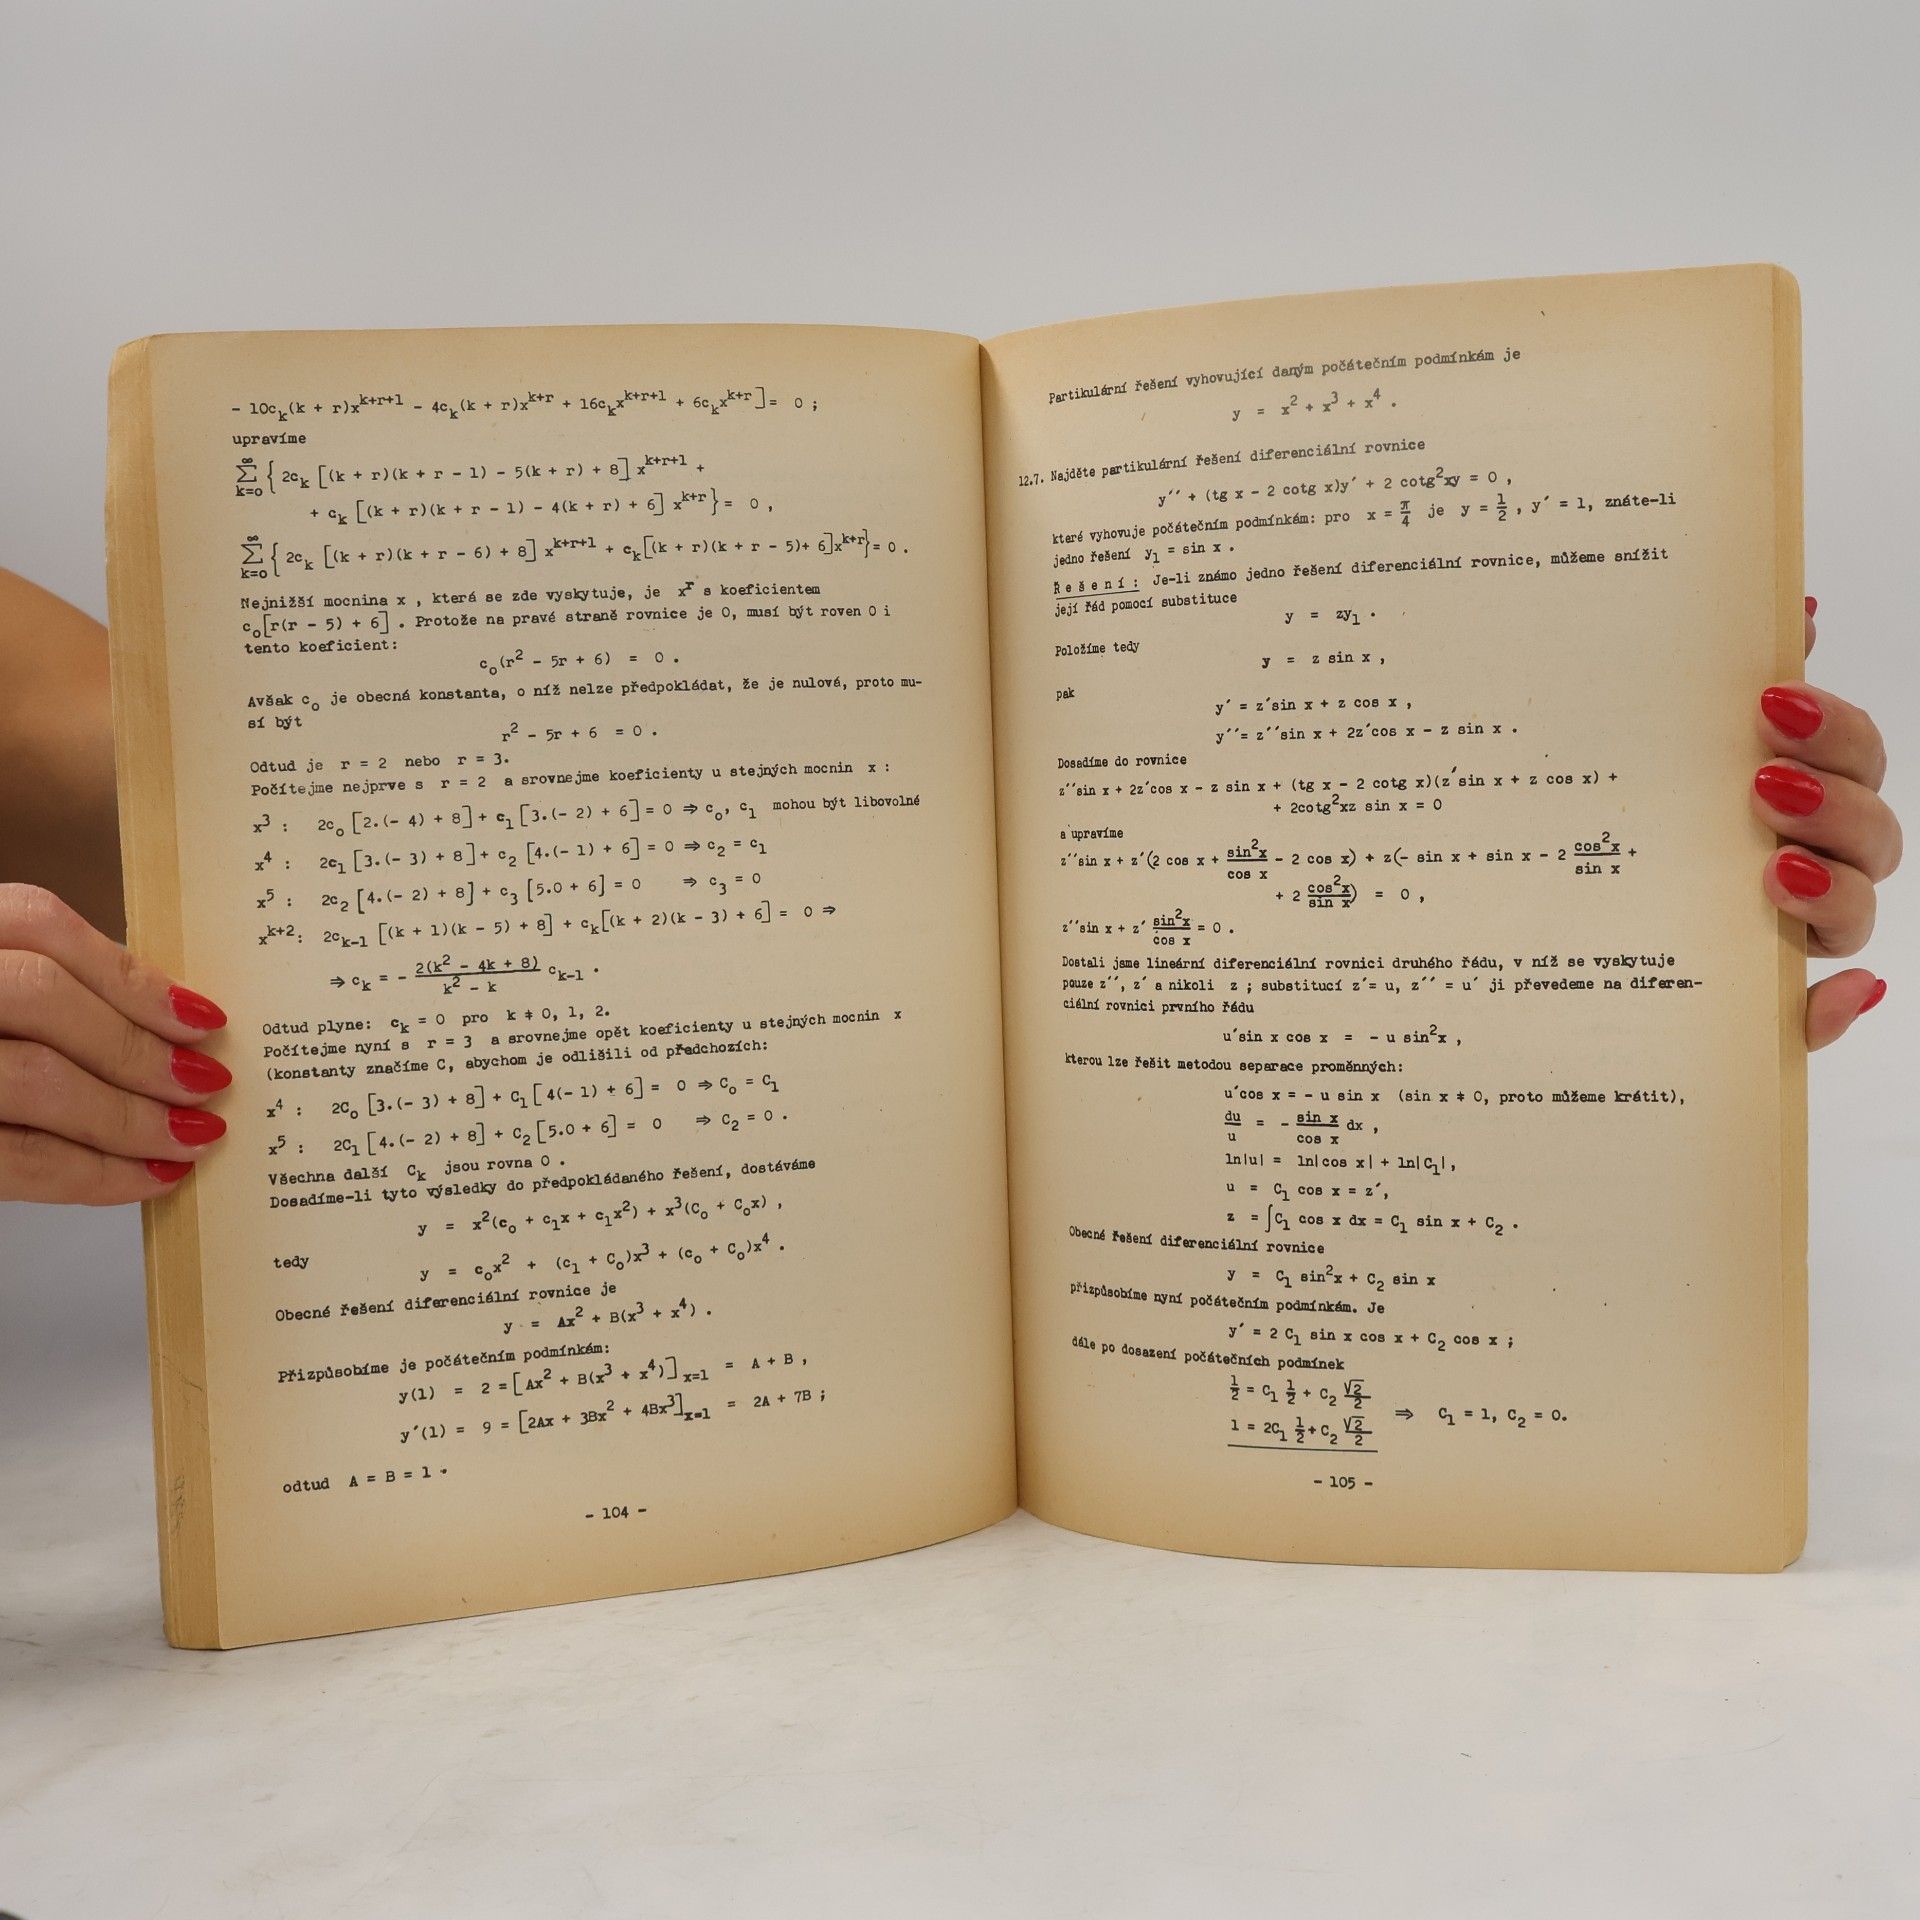 - 10c_k(k + r)x^{k+r+1} - 4c_k(k + r)x^{k+r} + 16c_kx^{k+r+1} + 6c_kx^{k+r}] = 0 ;
upravíme
∞∑k=o { 2c_k [(k + r)(k + r - 1) - 5(k + r) + 8] x^{k+r+1} +
+ c_k [(k + r)(k + r - 1) - 4(k + r) + 6] x^{k+r} } = 0 ,
∞∑k=o { 2c_k [(k + r)(k + r - 6) + 8] x^{k+r+1} + c_k[(k + r)(k + r - 5)+ 6]x^{k+r}} = 0 .
Nejnižší mocnina x , která se zde vyskytuje, je x^r s koeficientem
c_o[r(r - 5) + 6] . Protože na pravé straně rovnice je 0, musí být roven 0 i
tento koeficient:
c_o(r^2 - 5r + 6) = 0 .
Avšak c_o je obecná konstanta, o níž nelze předpokládat, že je nulová, proto mu-
sí být
r^2 - 5r + 6 = 0 .
Odtud je r = 2 nebo r = 3.
Počítejme nejprve s r = 2 a srovnejme koeficienty u stejných mocnin x :
x^3 : 2c_o [2.(- 4) + 8] + c_1 [3.(- 2) + 6] = 0 ⇒ c_o, c_1 mohou být libovolné
x^4 : 2c_1 [3.(- 3) + 8] + c_2 [4.(- 1) + 6] = 0 ⇒ c_2 = c_1
x^5 : 2c_2 [4.(- 2) + 8] + c_3 [5.0 + 6] = 0 ⇒ c_3 = 0
x^{k+2}: 2c_{k-1} [(k + 1)(k - 5) + 8] + c_k[(k + 2)(k - 3) + 6] = 0 ⇒
⇒ c_k = - \frac{2(k^2 - 4k + 8)}{k^2 - k} c_{k-1} .
Odtud plyne: c_k = 0 pro k ≠ 0, 1, 2.
Počítejme nyní s r = 3 a srovnejme opět koeficienty u stejných mocnin x
(konstanty značíme C, abychom je odlišili od předchozích:
x^4 : 2C_o [3.(- 3) + 8] + C_1 [ 4(- 1) + 6] = 0 ⇒ C_o = C_1
x^5 : 2C_1 [4.(- 2) + 8] + C_2 [5.0 + 6] = 0 ⇒ C_2 = 0 .
Všechna další C_k jsou rovna 0 .
Dosadíme-li tyto výsledky do předpokládaného řešení, dostáváme
y = x^2(c_o + c_1x + c_1x^2) + x^3(C_o + C_ox) ,
tedy
y = c_ox^2 + (c_1 + C_o)x^3 + (c_o + C_o)x^4 .
Obecné řešení diferenciální rovnice je
y = Ax^2 + B(x^3 + x^4) .
Přizpůsobíme je počátečním podmínkám:
y(1) = 2 = [ Ax^2 + B(x^3 + x^4)]_{x=1} = A + B ,
y´(1) = 9 = [2Ax + 3Bx^2 + 4Bx^3]_{x=1} = 2A + 7B ;
odtud A = B = 1 .
- 104 -
Partikulární řešení vyhovující daným počátečním podmínkám je
y = x^2 + x^3 + x^4 .
12.7. Najděte partikulární řešení diferenciální rovnice
y´´ + (tg x - 2 cotg x)y´ + 2 cotg^2xy = 0 ,
které vyhovuje počátečním podmínkám: pro x = \frac{π}{4} je y = \frac{1}{2} , y´ = 1, znáte-li
jedno řešení y_1 = sin x .
Řešení: Je-li známo jedno řešení diferenciální rovnice, můžeme snížit
její řád pomocí substituce
y = zy_1 .
Položíme tedy
y = z sin x ,
pak
y´ = z´sin x + z cos x ,
y´´= z´´sin x + 2z´cos x - z sin x .
Dosadíme do rovnice
z´´sin x + 2z´cos x - z sin x + (tg x - 2 cotg x)(z´sin x + z cos x) +
+ 2cotg^2xz sin x = 0
a upravíme
z´´sin x + z´(2 cos x + \frac{sin^2x}{cos x} - 2 cos x) + z(- sin x + sin x - 2 \frac{cos^2x}{sin x} +
+ 2 \frac{cos^2x}{sin x}) = 0 ,
z´´sin x + z´ \frac{sin^2x}{cos x} = 0 .
Dostali jsme lineární diferenciální rovnici druhého řádu, v níž se vyskytuje
pouze z´´, z´ a nikoli z ; substitucí z´= u, z´´ = u´ ji převedeme na diferen-
ciální rovnici prvního řádu
u´sin x cos x = - u sin^2x ,
kterou lze řešit metodou separace proměnných:
u´cos x = - u sin x (sin x ≠ 0, proto můžeme krátit),
\frac{du}{u} = - \frac{sin x}{cos x} dx ,
ln|u| = ln|cos x| + ln|C_1|,
u = C_1 cos x = z´,
z = ∫C_1 cos x dx = C_1 sin x + C_2 .
Obecné řešení diferenciální rovnice
y = C_1 sin^2x + C_2 sin x
přizpůsobíme nyní počátečním podmínkám. Je
y´ = 2 C_1 sin x cos x + C_2 cos x ;
dále po dosazení počátečních podmínek
\frac{1}{2} = C_1 \frac{1}{2} + C_2 \frac{√2}{2}
⇒ C_1 = 1, C_2 = 0.
1 = 2C_1 \frac{1}{2} + C_2 \frac{√2}{2}
- 105 -